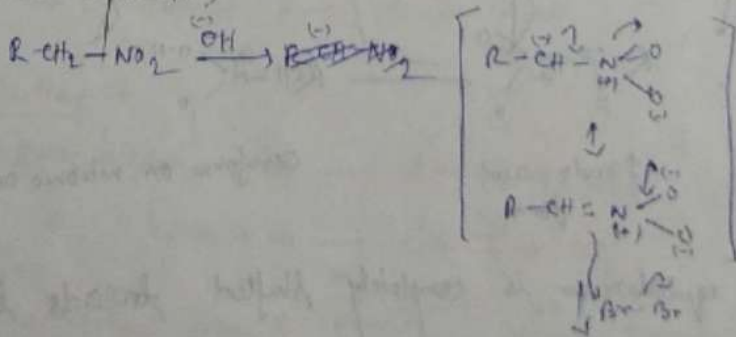 R-CH₂-NO₂ —(⁻)OH→ R-CH(-)-NO₂ [ R-CH(-)-N(+) O O(-)
↔
R-CH=N(+) O(-) O(-)
Br Br